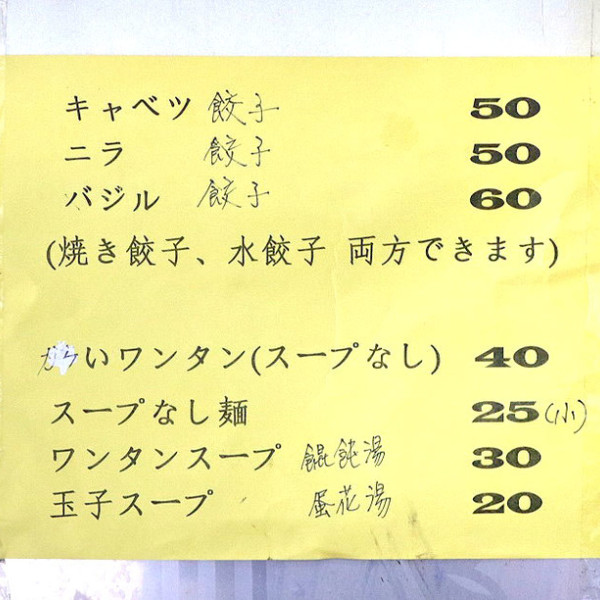 キャベツ 餃子 50
ニラ 餃子 50
バジル 餃子 60
(焼き餃子、水餃子 両方できます)
からいワンタン(スープなし) 40
スープなし麺 25(小)
ワンタンスープ 餛飩湯 30
玉子スープ 蛋花湯 20